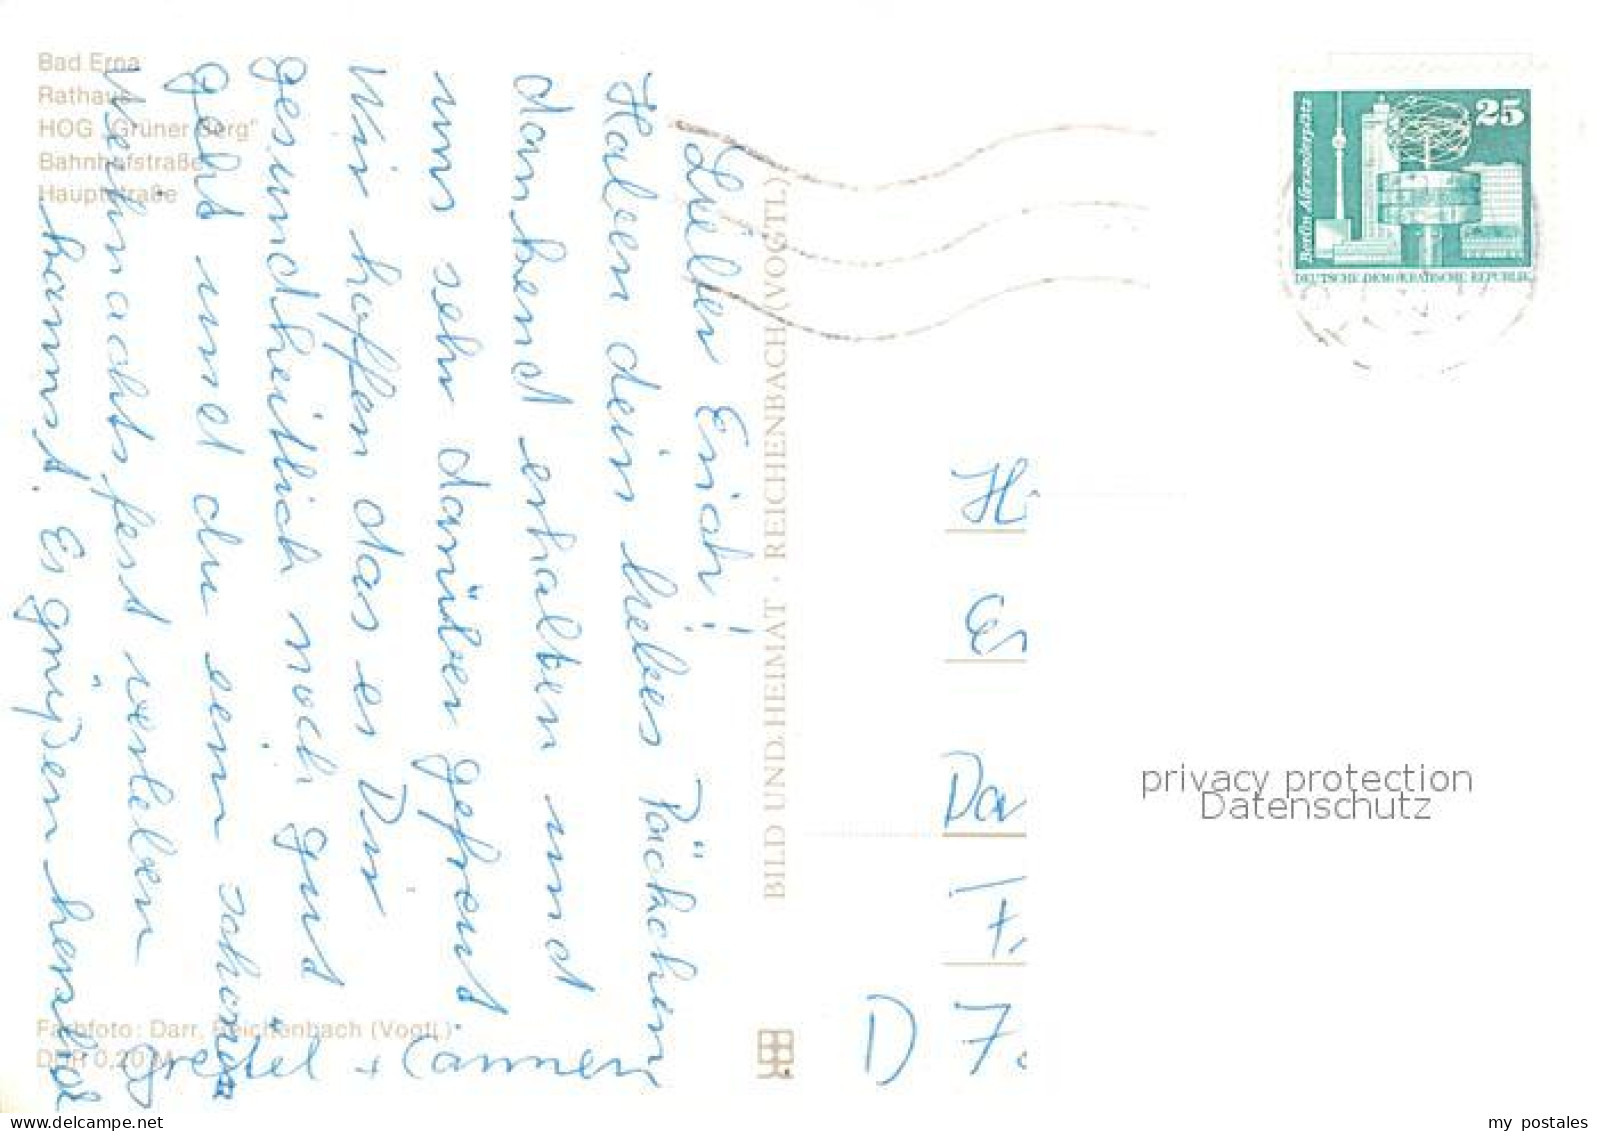 Bad Erna
Rathaus
HOG „Grüner Berg"
Bahnhofstraße
Hauptstraße
Lieber Erich!
Haben dein liebes Päckchen
dankend erhalten und
uns sehr darüber gefreut
Wir hoffen das es Dir
gesundheitlich noch gut
geht und du ein schönes
Weihnachtsfest verleben
kannst. Es grüßen herzlich
Gretel + Carmen
Farbfoto: Darr, Reichenbach (Vogtl.)
DDR 0,20 M
BILD UND HEIMAT · REICHENBACH (VOGTL.)
25
Berlin Alexanderplatz
DEUTSCHE DEMOKRATISCHE REPUBLIK
H
Da
D 7
privacy protection
Datenschutz
delcampe.net
my_postales